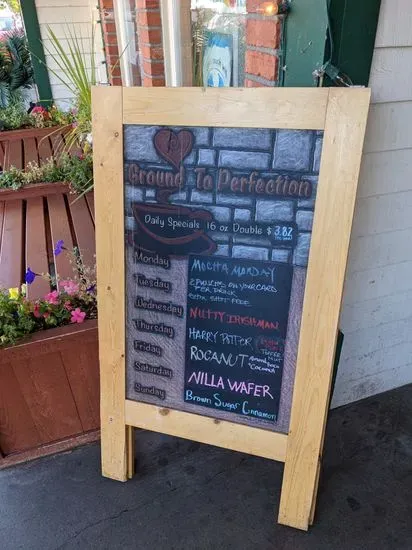 Ground To Perfection
Daily Specials 16 oz Double $3.82
Monday MOCHA MONDAY
Tuesday 2 PUNCHES ON YOUR CARD
PER DRINK
EXTRA SHOT FREE
Wednesday NUTTY IRISHMAN
Thursday HARRY POTTER
Friday ROCANUT
Almond
Coconut
Saturday NILLA WAFER
Sunday Brown Sugar Cinnamon